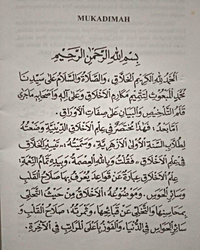 MUKADIMAH
بِسْمِ اللهِ الرَّحْمٰنِ الرَّحِيْمِ
الحَمْدُ للهِ الكَرِيْمِ الخَلَّاقِ، وَالصَّلَاةُ وَالسَّلَامُ عَلَى سَيِّدِنَا
مُحَمَّدٍ المَبْعُوْثِ لِتَتْمِيْمِ مَكَارِمِ الأَخْلَاقِ وَعَلَى آلِهِ وَأَصْحَابِهِ مَاجَرَى
قَلَمُ التَّلْخِيْصِ وَالبَيَانِ عَلَى صَفَحَاتِ الأَوْرَاقِ.
أَمَّا بَعْدُ، فَهٰذَا مُخْتَصَرٌ فِي عِلْمِ الأَخْلَاقِ الدِّيْنِيَّةِ وَضَعْتُهُ
لِطُلَّابِ السَّنَةِ الأُوْلَى الأَزْهَرِيَّةِ، وَسَمَّيْتُهُ:
فِي عِلْمِ الأَخْلَاقِ، فَقُلْتُ وَبِاللهِ العِصْمَةُ، وَبِيَدِهِ تَمَامُ النِّعْمَةِ
عِلْمُ الأَخْلَاقِ عِبَارَةٌ عَنْ قَوَاعِدَ يُعْرَفُ بِهَا صَلَاحُ القَلْبِ
وَسَائِرِ الحَوَاسِّ، وَمَوْضُوْعُهُ: الأَخْلَاقُ مِنْ حَيْثُ التَّحَلِّي
بِمَحَاسِنِهَا وَالتَّخَلِّي عَنْ قَبَائِحِهَا، وَثَمْرَتُهُ: صَلَاحُ القَلْبِ
وَسَائِرِ الحَوَاسِّ فِي الدُّنْيَا، وَالفَوْزُ بِأَعْلَى المَرَاتِبِ فِي الآخِرَةِ.